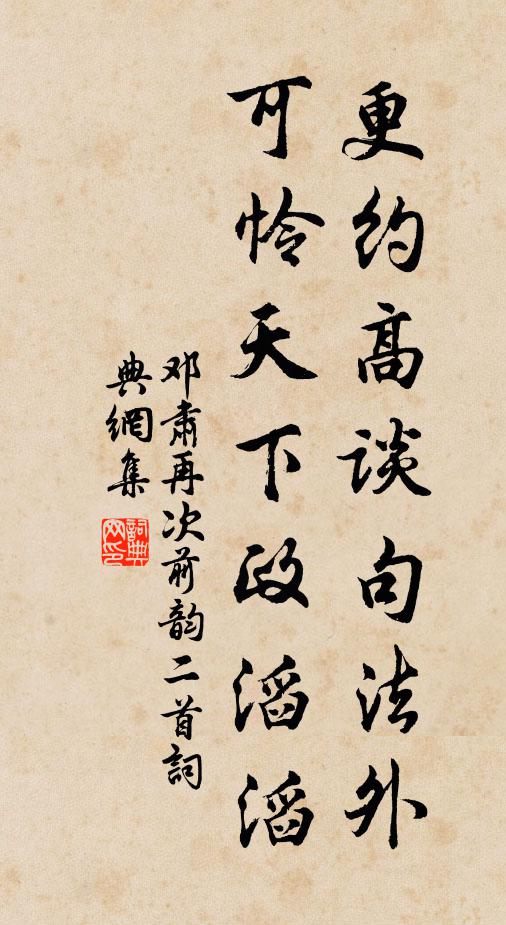 更约高谈句法外
可怜天下政滔滔
邓肃再次前韵二首詞
典網集
詞典
网印